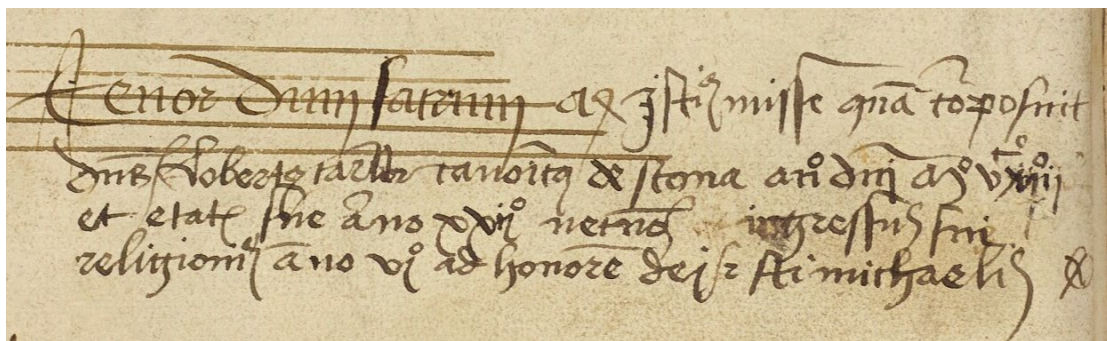 Tenor Dum sacrum istiꝰ misse quā cōposuit
dns Robertꝰ caruor canoicꝰ de scona año dni
et etatꝭ sue āno xxijº necnō ingressus sui
religionis āno vjº ad honorē dei & sti michaelis